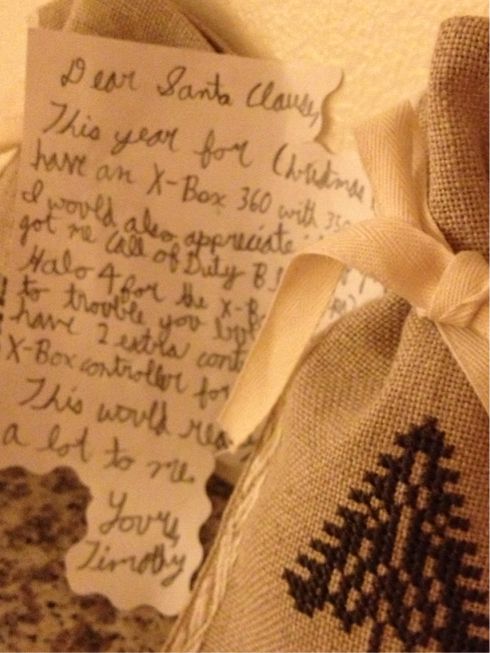 Dear Santa Clause,
This year for Christmas
have an X-Box 360 with
I would also appreciate
got me Call of Duty B
Halo 4 for the X-B
to trouble you but
have 2 extra cont
X-Box controller for
This would rea
a lot to me.
Yours,
Timothy